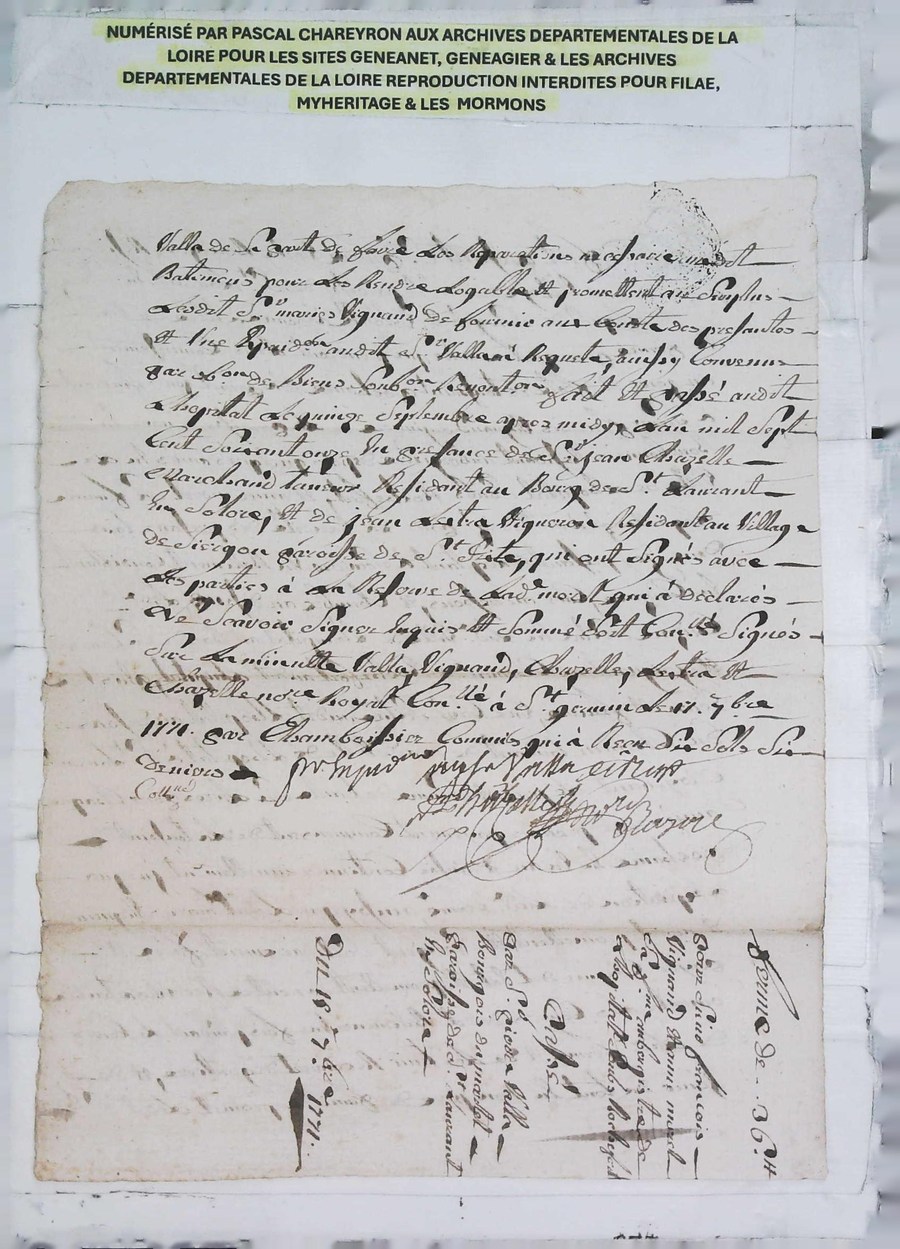 NUMÉRISÉ PAR PASCAL CHAREYRON AUX ARCHIVES DEPARTEMENTALES DE LA
LOIRE POUR LES SITES GENEANET, GENEAGIER & LES ARCHIVES
DEPARTEMENTALES DE LA LOIRE REPRODUCTION INTERDITES POUR FILAE,
MYHERITAGE & LES MORMONS
Valla de Se de faire Les Reparations necessaire audot
Batimens pour Les Rendre Logeable Et promettent au Surplus
Lesdit Sr maries Vignaud de fournir aux Conste des presantes
Et Une audit Sr Valla a Requete, ainsy Convenus
par de Biens fait Et passé audit
Lhopital Le quinze Septembre apres midy, Lan mil Sept
Cent Soixant onze In presance de Sr jean Chazelle
Marchand taneur Residant au Bourg de St Laurant
In Solore, Et de jean Lestra Vigneron Residant au Village
de paroisse de St qui ont Signés avec
Les parties à La Reserve de Lade morel qui à declarés
Né Scavoir Signer Inquis Et Sommé Soit Signés
Sur La minutte Valla, Vignaud, Chazelle, Lestra Et
Chazelle nore Royal Conllé à St germain Le 17. 7bre
1771. par Chamboissier Commis qui à Recu Six Sols Six
deniers
Collné
Ferme de 36lt
pour Sieur françois
Vignaud Et anne morel
Sa fme aubergiste de
Lhopital Sous Rochefort
Passé
par Sr pierre Valla
Bourgois du
Paroisse de St Laurant
In Solore
Du 15. 7bre 1771.